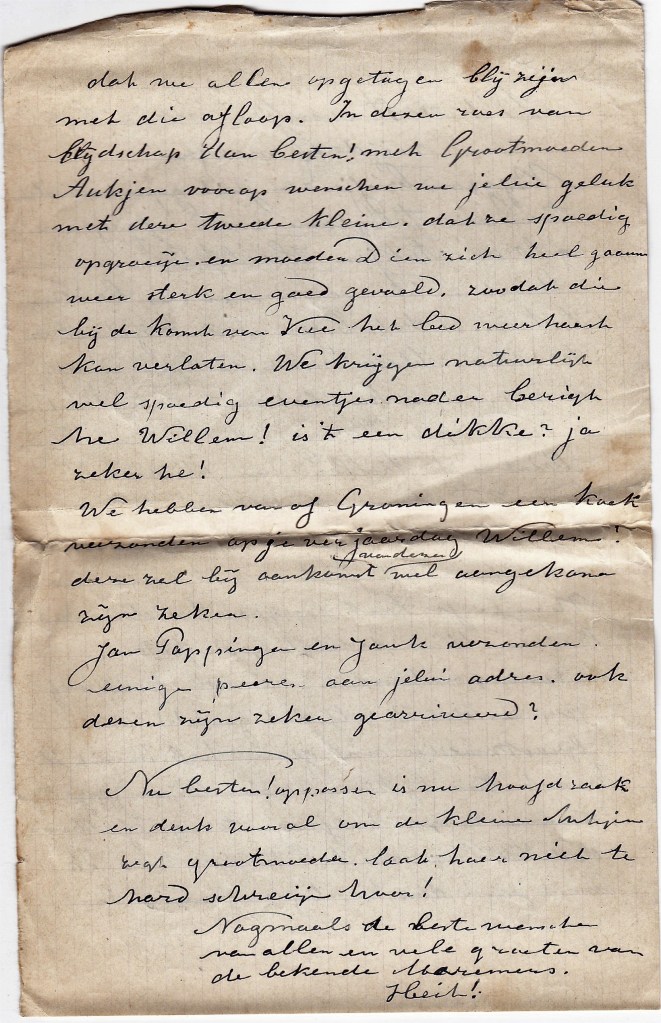 dat we allen opgetogen blij zijn
met die afloop. In dezen roes van
blijdschap dan besten! met Grootmoeder
Aukjen voorop wenschen we jelui geluk
met deze tweede kleine. dat ze spoedig
opgroeije. en moeder Dien zich heel gaauw
weer sterk en goed gevoeld. zoodat die
bij de komst van het bed weer haast
kan verlaten. We krijgen natuurlijk
wel spoedig eventjes nader berigt
he Willem! is 't een dikke? ja
zeker he!
We hebben vanaf Groningen een koek
verzonden op je verjaardag Willem!
deze zal bij aankomst wel aangekomen
zijn zeker.
Jan Tappinga en Jank verzonden
eenige peeren aan jelui adres. ook
dezen zijn zeker gearriveerd?
Nu besten! oppassen is nu hoofdzaak
en denk vooral om de kleine Aukjen
zegt grootmoeder. laat haar niet te
hard schreije hoor!
Nogmaals de beste wenschen
van allen en vele groeten van
de bekende
Heit!